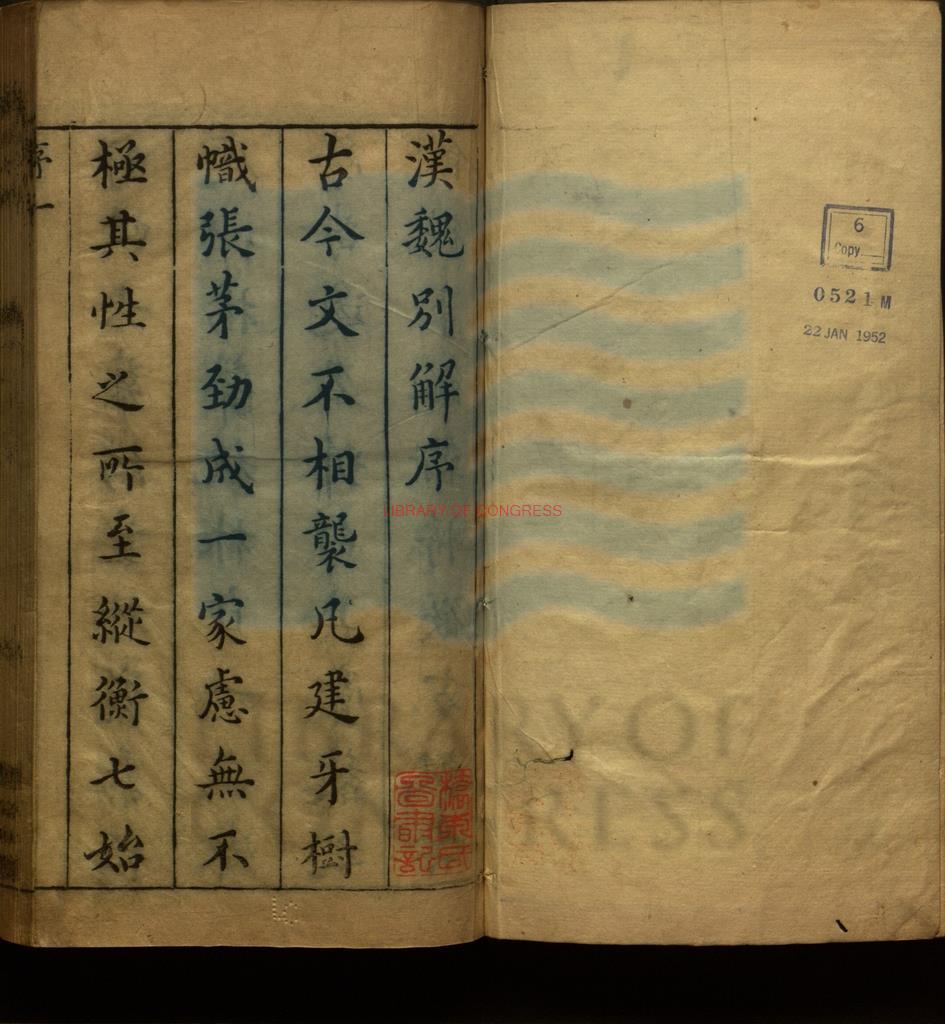 漢魏別解序
古今文不相襲凡建牙樹
幟張茅勁成一家慮無不
極其性之所至縱衡七始
序 一
6
Copy
0521 M
22 JAN 1952
LIBRARY OF CONGRESS
LC